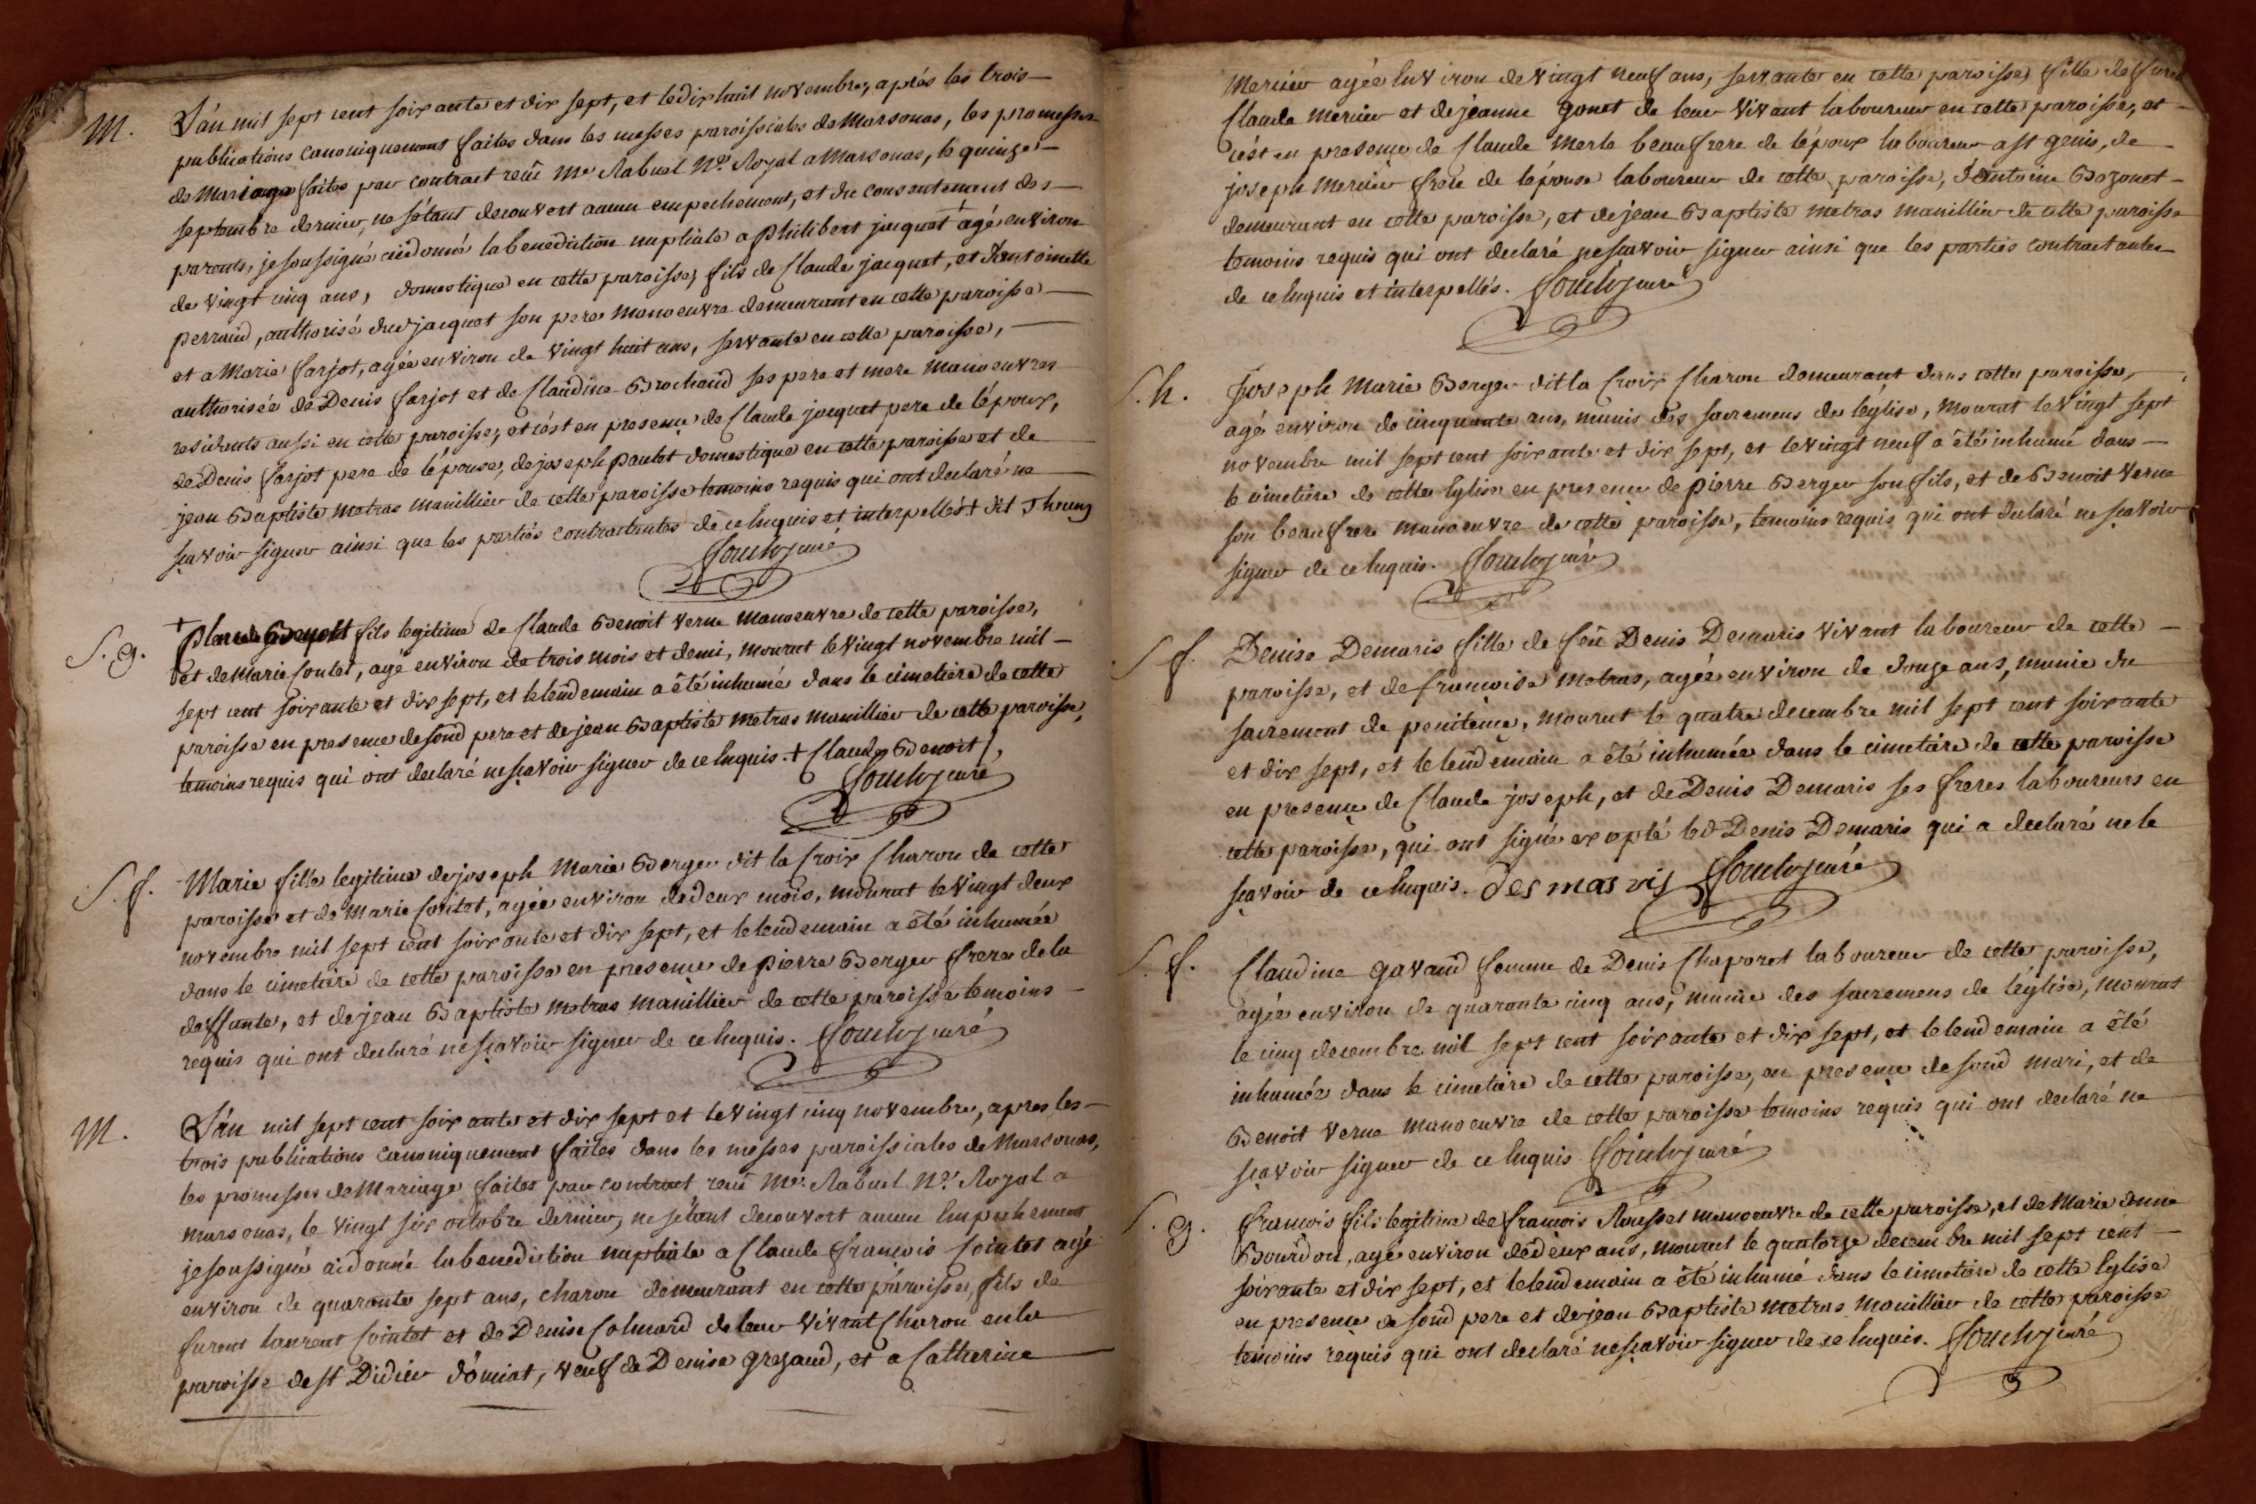 M.
L'an mil sept cent soixante et dix sept, et le dix huit novembre, aprés les trois
publications canoniquement faites dans les messes paroissiales de Marsonas, les promesses
de Mariage faites par contract reçû Me Rabuel Nre Royal a Marsonas, le quinze
septembre dernier, ne s'étant decouvert aucun empechement, et du consentement des
parents, je soussigné ai donné la benediction nuptiale a Philibert jacquet âgé environ
de vingt cinq ans, domestique en cette paroisse, fils de Claude jacquet, et d'antoinette
perraud, authorisé dud jacquet son pere manoeuvre demeurant en cette paroisse
et a Marie farjot, agée environ de vingt huit ans, servante en cette paroisse,
authorisée de Denis farjot et de Claudine Brochand ses pere et mere manoeuvres
residents aussi en cette paroisse, et c'est en presence de Claude jacquet pere de l'époux,
de Denis farjot pere de l'épouse, de joseph paulet domestique en cette paroisse et de
jean Baptiste metras manillier de cette paroisse temoins requis qui ont declaré ne
sçavoir signer ainsi que les parties contractantes de ce enquis et interpellés + dit
curé
S. g.
+
fils legitime de Claude Benoit verne manoeuvre de cette paroisse,
et de Marie Contet, agé environ de trois mois et demi, mourut le vingt novembre mil
sept cent soixante et dix sept, et le lendemain a été inhumé dans le cimetiére de cette
paroisse en presence de sond pere et de jean Baptiste metras manillier de cette paroisse,
temoins requis qui ont declaré ne sçavoir signer de ce enquis. + Claude Benoit
curé
S. f.
Marie fille legitime de joseph Marie Berger dit la Croix Charon de cette
paroisse et de Marie Contet, agée environ de deux mois, mourut le vingt deux
novembre mil sept cent soixante et dix sept, et le lendemain a été inhumée
dans le cimetiére de cette paroisse en presence de pierre Berger frere de la
deffunte, et de jean Baptiste metras manillier de cette paroisse temoins
requis qui ont declaré ne sçavoir signer de ce enquis. curé
M.
L'an mil sept cent soixante et dix sept et le vingt cinq novembre, apres les
trois publications canoniquement faites dans les messes paroissiales de Marsonas,
les promesses de Mariage faites par contract reçû Me Rabuel Nre Royal a
marsonas, le vingt six octobre dernier, ne s'étant decouvert aucun Empechement
je soussigné ai donné la benediction nuptiale a Claude françois Cointet agé
environ de quarante sept ans, charon demeurant en cette paroisse, fils de
furent laurent Cointet et de Denise Colmard de leur vivant Charon en la
paroisse de st Didier d'oussiat, veuf de Denise grezaud, et a Catherine
Mercier agée Environ de vingt neuf ans, servante en cette paroisse, fille de furent
Claude mercier et de jeanne gonet de leur vivant laboureur en cette paroisse, et
c'est en presence de Claude merle beaufrere de l'époux laboureur a st genis, de
joseph mercier frere de l'épouse laboureur de cette paroisse, d'antoine Bozonet
demeurant en cette paroisse, et de jean Baptiste metras manillier de cette paroisse
temoins requis qui ont declaré ne sçavoir signer ainsi que les parties contractantes
de ce enquis et interpellés. curé
S. h.
joseph Marie Berger dit la Croix Charon demeurant dans cette paroisse,
agé environ de cinquante ans, munis des sacremens de l'église, mourut le vingt sept
novembre mil sept cent soixante et dix sept, et le vingt neuf a été inhumé dans
le cimetiére de cette Eglise en presence de pierre Berger son fils, et de Benoit verne
son beaufrere manoeuvre de cette paroisse, temoins requis qui ont declaré ne sçavoir
signer de ce enquis. curé
S f.
Denise Demaris fille de feû Denis Demaris vivant laboureur de cette
paroisse, et de françoise metras, agée environ de douze ans, munie du
sacrement de penitence, mourut le quatre decembre mil sept cent soixante
et dix sept, et le lendemain a été inhumée dans le cimetiére de cette paroisse
en presence de Claude joseph, et de Denis Demaris ses freres laboureurs en
cette paroisse, qui ont signé excepté led Denis Demaris qui a declaré ne le
sçavoir de ce enquis. des mas ris curé
S. f.
Claudine gavand femme de Denis Chaporet laboureur de cette paroisse,
agée environ de quarante cinq ans, munie des sacremens de l'église, mourut
le cinq decembre mil sept cent soixante et dix sept, et le lendemain a été
inhumée dans le cimetiére de cette paroisse, en presence de sond mari, et de
Benoit verne manoeuvre de cette paroisse temoins requis qui ont declaré ne
sçavoir signer de ce enquis curé
S. g.
françois fils legitime de françois Rousset manoeuvre de cette paroisse, et de Marie anne
Bourdon, agé environ de deux ans, mourut le quatorze decembre mil sept cent
soixante et dix sept, et le lendemain a été inhumé dans le cimetiére de cette Eglise
en presence de sond pere et de jean Baptiste metras manillier de cette paroisse
temoins requis qui ont declaré ne sçavoir signer de ce enquis. curé